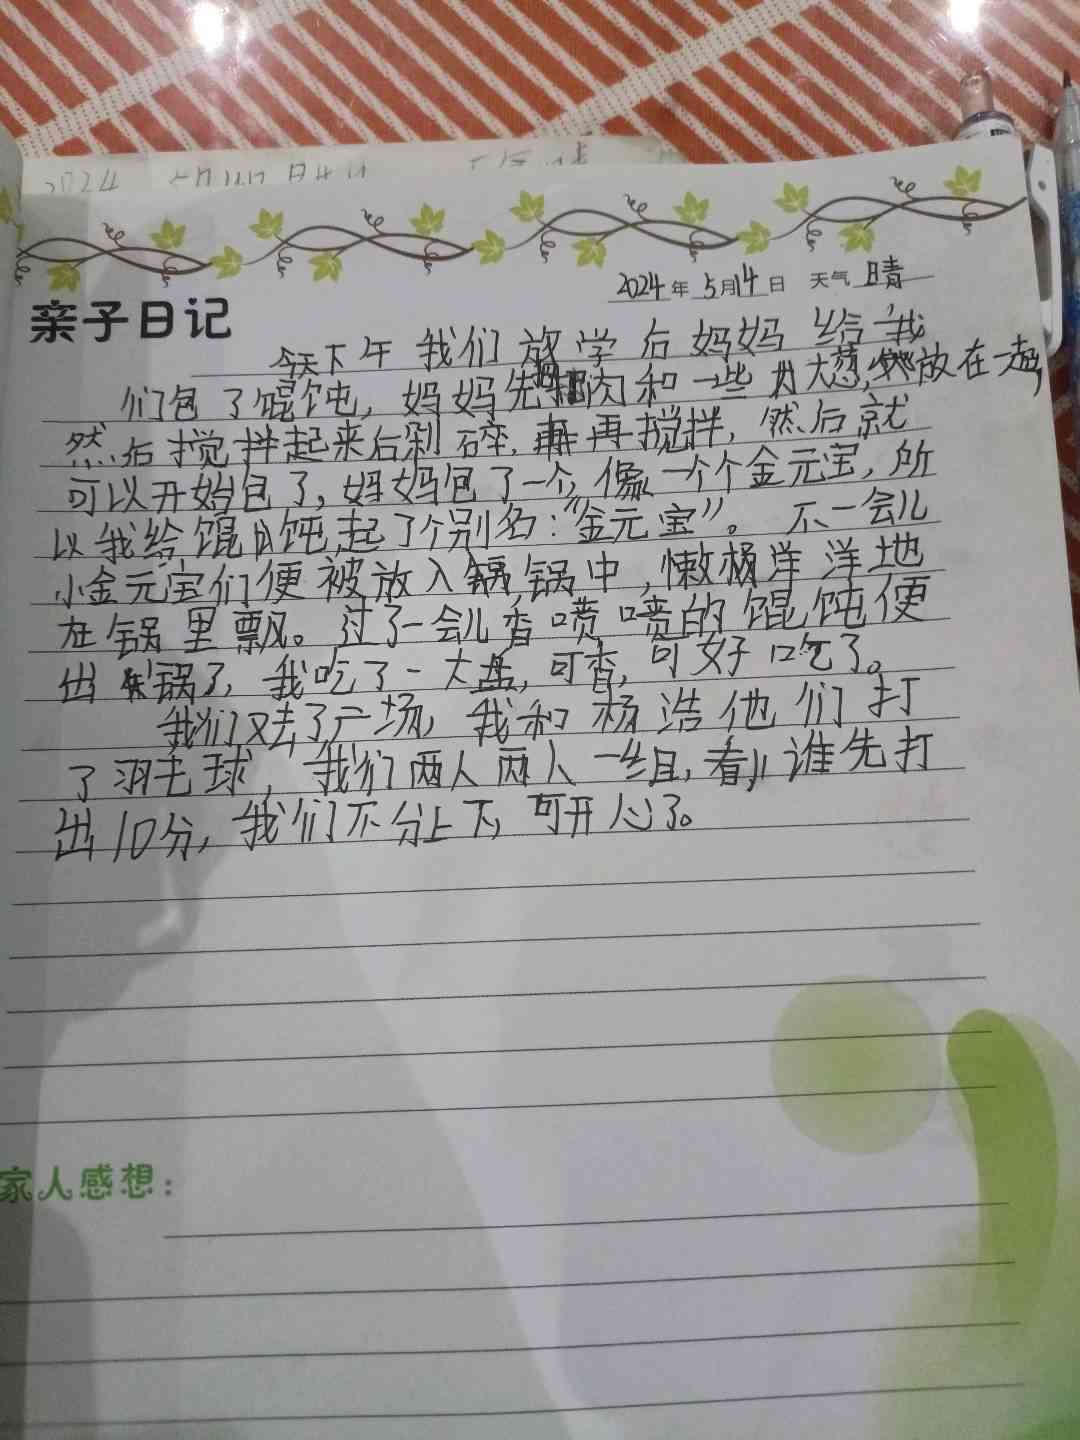 2024年5月14日 天气 晴
亲子日记
今天下午我们放学后妈妈给我
们包了馄饨，妈妈先把肉和一些大葱，放在一起，
然后搅拌起来后剁碎，再搅拌，然后就
可以开始包了，妈妈包了一个，像一个个金元宝，所
以我给馄饨起了个别名：“金元宝”。不一会儿
小金元宝们便被放入锅中，懒杨洋洋地
在锅里飘。过了一会儿香喷喷的馄饨便
出锅了，我吃了一大盘，可香，可好吃了。
我们又去了广场，我和杨浩他们打
了羽毛球，我们两人两人一组，看谁先打
出10分，我们不分上下，可开心了。
家人感想：